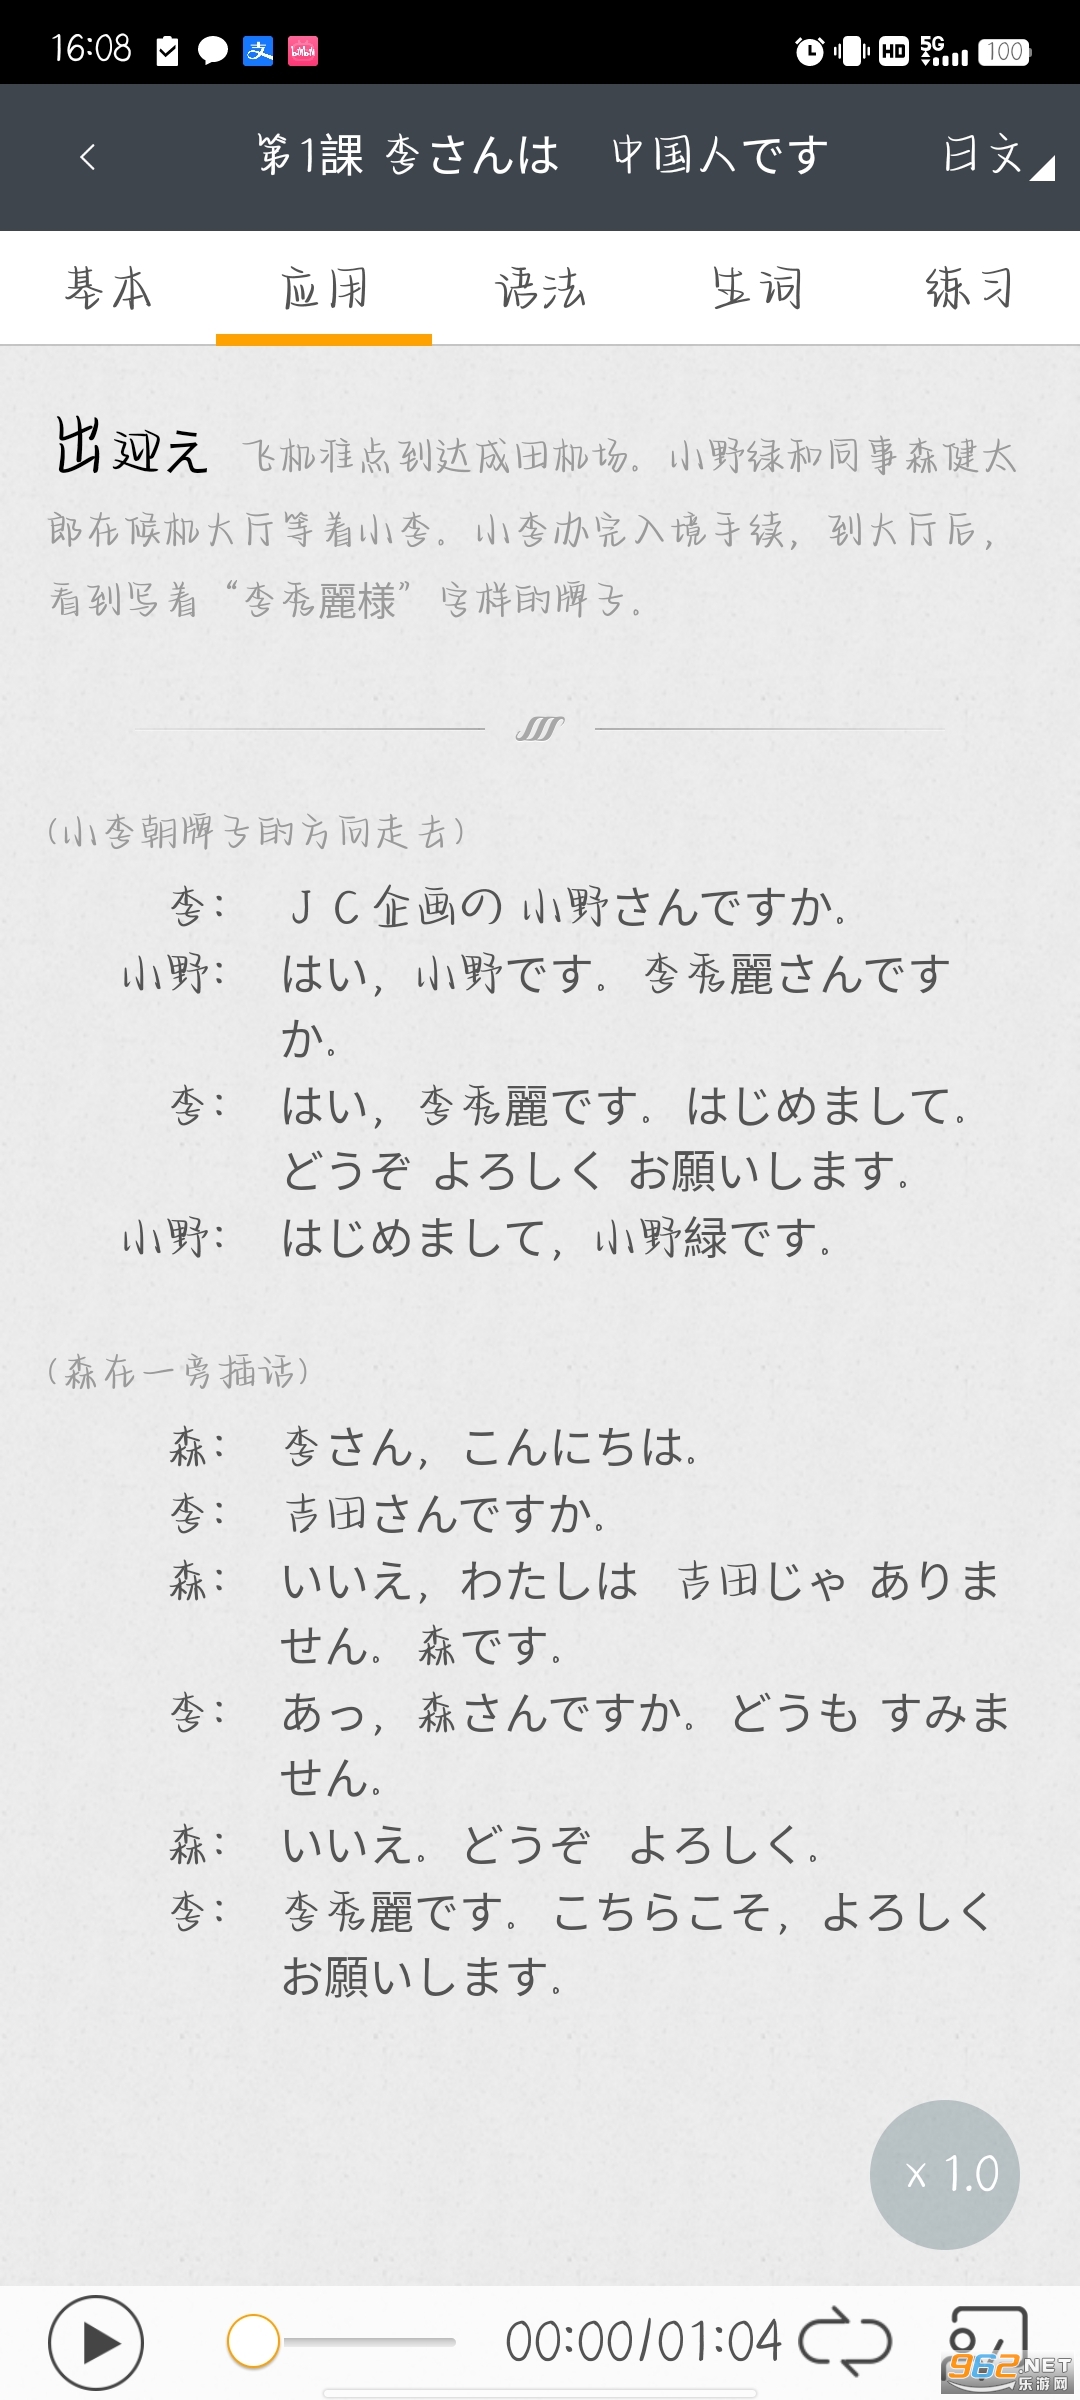 16:08 支 bilibili HD 5G 100
第1課 李さんは 中国人です 日文
基本 应用 语法 生词 练习
出迎え 飞机准点到达成田机场。小野绿和同事森健太
郎在候机大厅等着小李。小李办完入境手续，到大厅后，
看到写着“李秀麗様”字样的牌子。
(小李朝牌子的方向走去)
李： ＪＣ企画の 小野さんですか。
小野： はい，小野です。李秀麗さんです
か。
李： はい，李秀麗です。はじめまして。
どうぞ よろしく お願いします。
小野： はじめまして，小野緑です。
(森在一旁插话)
森： 李さん，こんにちは。
李： 吉田さんですか。
森： いいえ，わたしは 吉田じゃ ありま
せん。森です。
李： あっ，森さんですか。どうも すみま
せん。
森： いいえ。どうぞ よろしく。
李： 李秀麗です。こちらこそ，よろしく
お願いします。
x 1.0
00:00/01:04
962.NET
乐游网